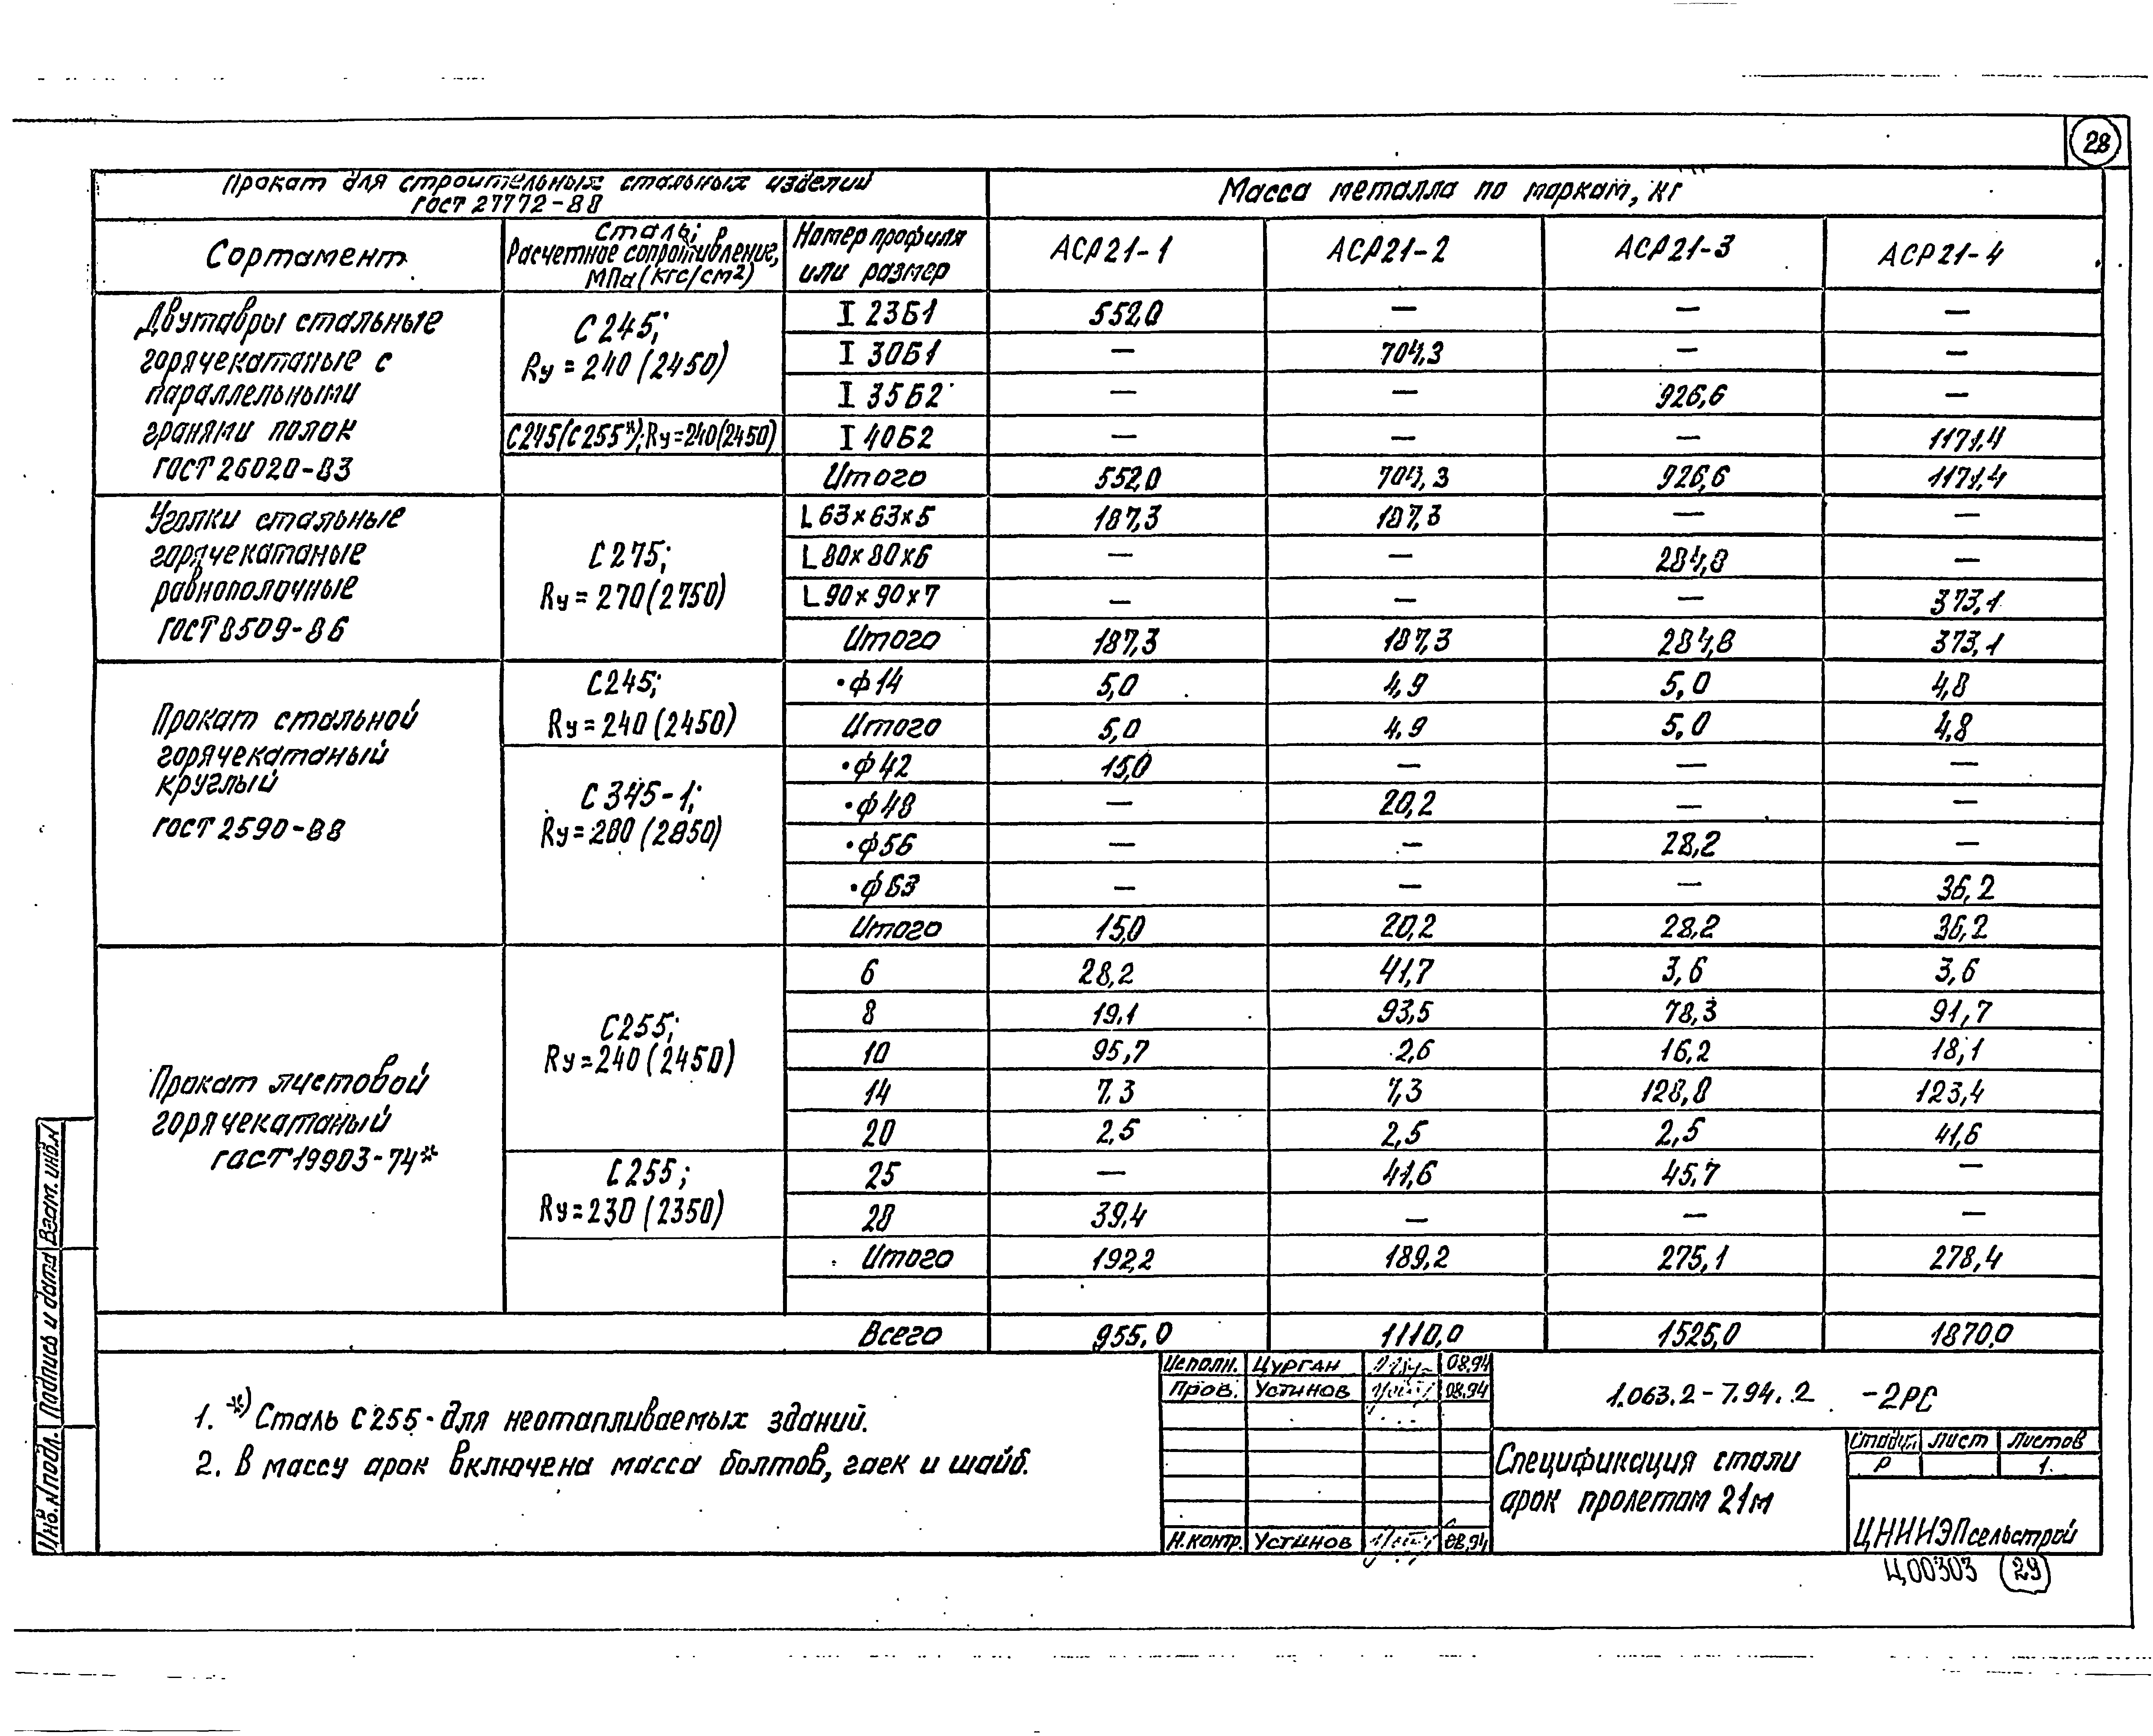 28
Прокат для строительных стальных изделий
ГОСТ 27772-88
Масса металла по маркам, кг
Сортамент
Сталь;
Расчетное сопротивление,
МПа (кгс/см2)
Номер профиля
или размер
АСР21-1 АСР21-2 АСР21-3 АСР21-4
Двутавры стальные
горячекатаные с
параллельными
гранями полок
ГОСТ 26020-83
С245;
Ry = 240 (2450)
I 23Б1 552,0 — — —
I 30Б1 — 704,3 — —
I 35Б2 — — 926,6 —
С245(С255*); Ry=240(2450) I 40Б2 — — — 1171,4
Итого 552,0 704,3 926,6 1171,4
Уголки стальные
горячекатаные
равнополочные
ГОСТ 8509-86
С275;
Ry = 270 (2750)
L 63×63×5 187,3 187,3 — —
L 80×80×6 — — 284,8 —
L 90×90×7 — — — 373,1
Итого 187,3 187,3 284,8 373,1
Прокат стальной
горячекатаный
круглый
ГОСТ 2590-88
С245;
Ry = 240 (2450)
•ф14 5,0 4,9 5,0 4,8
Итого 5,0 4,9 5,0 4,8
С345-1;
Ry = 280 (2850)
•ф42 15,0 — — —
•ф48 — 20,2 — —
•ф56 — — 28,2 —
•ф63 — — — 36,2
Итого 15,0 20,2 28,2 36,2
Прокат листовой
горячекатаный
ГОСТ 19903-74*
С255;
Ry = 240 (2450)
6 28,2 41,7 3,6 3,6
8 19,1 93,5 78,3 91,7
10 95,7 2,6 16,2 18,1
14 7.3 7,3 128,8 123,4
20 2,5 2,5 2,5 41,6
С255;
Ry = 230 (2350)
25 — 41,6 45,7 —
28 39,4 — — —
Итого 192,2 189,2 275,1 278,4
Всего 955,0 1110,0 1525,0 1870,0
1. *) Сталь С255 - для неотапливаемых зданий.
2. В массу арок включена масса болтов, гаек и шайб.
Исполн. Цурган 08.94
Пров. Устинов 08.94
Н.контр. Устинов 08.94
1.063.2-7.94.2 -2РС
Спецификация стали
арок пролетом 21м
Стадия Лист Листов
Р 1
ЦНИИЭПсельстрой
Ц00303 29
Инв.N подл. Подпись и дата Взам. инв.N